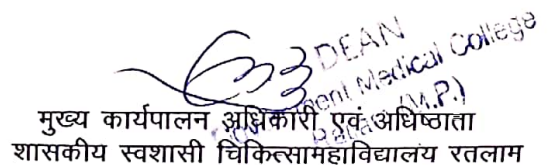 DEAN
Government Medical College
Ratlam (M.P.)
मुख्य कार्यपालन अधिकारी एवं अधिष्ठाता
शासकीय स्वशासी चिकित्सामहाविद्यालय रतलाम